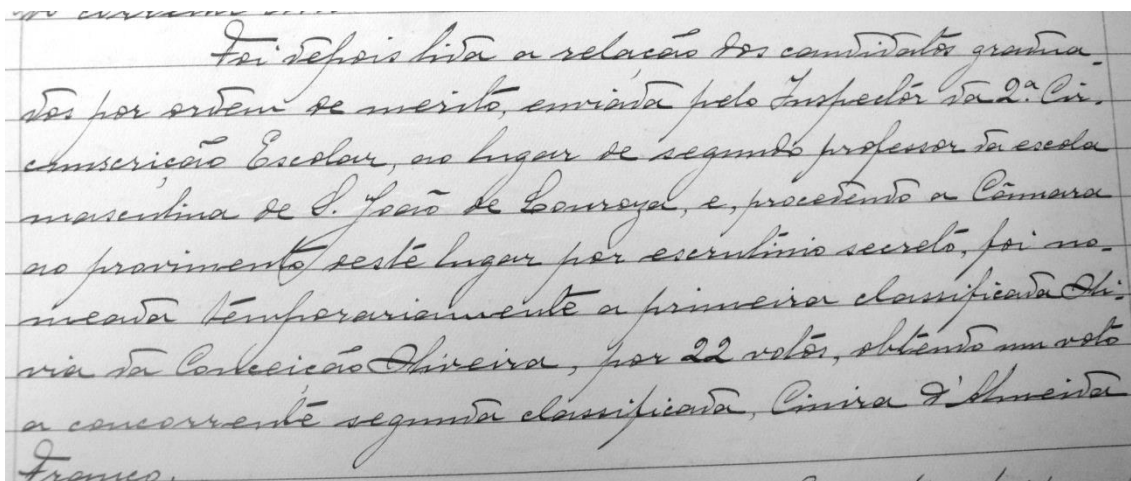 Foi depois lida a relação dos candidatos gradua-
dos por ordem de merito, enviada pelo Inspectôr da 2.ª Cir-
cumscrição Escolar, ao lugar de segundo professor da escola
masculina de S. João de Lourosa, e, procedendo a Câmara
ao provimento deste lugar por escrutinio secreto, foi no-
meada temporariamente a primeira classificada Oli-
via da Conceição Oliveira, por 22 votos, obtendo um voto
a concorrente segunda classificada, Cinira d'Almeida
Franco.